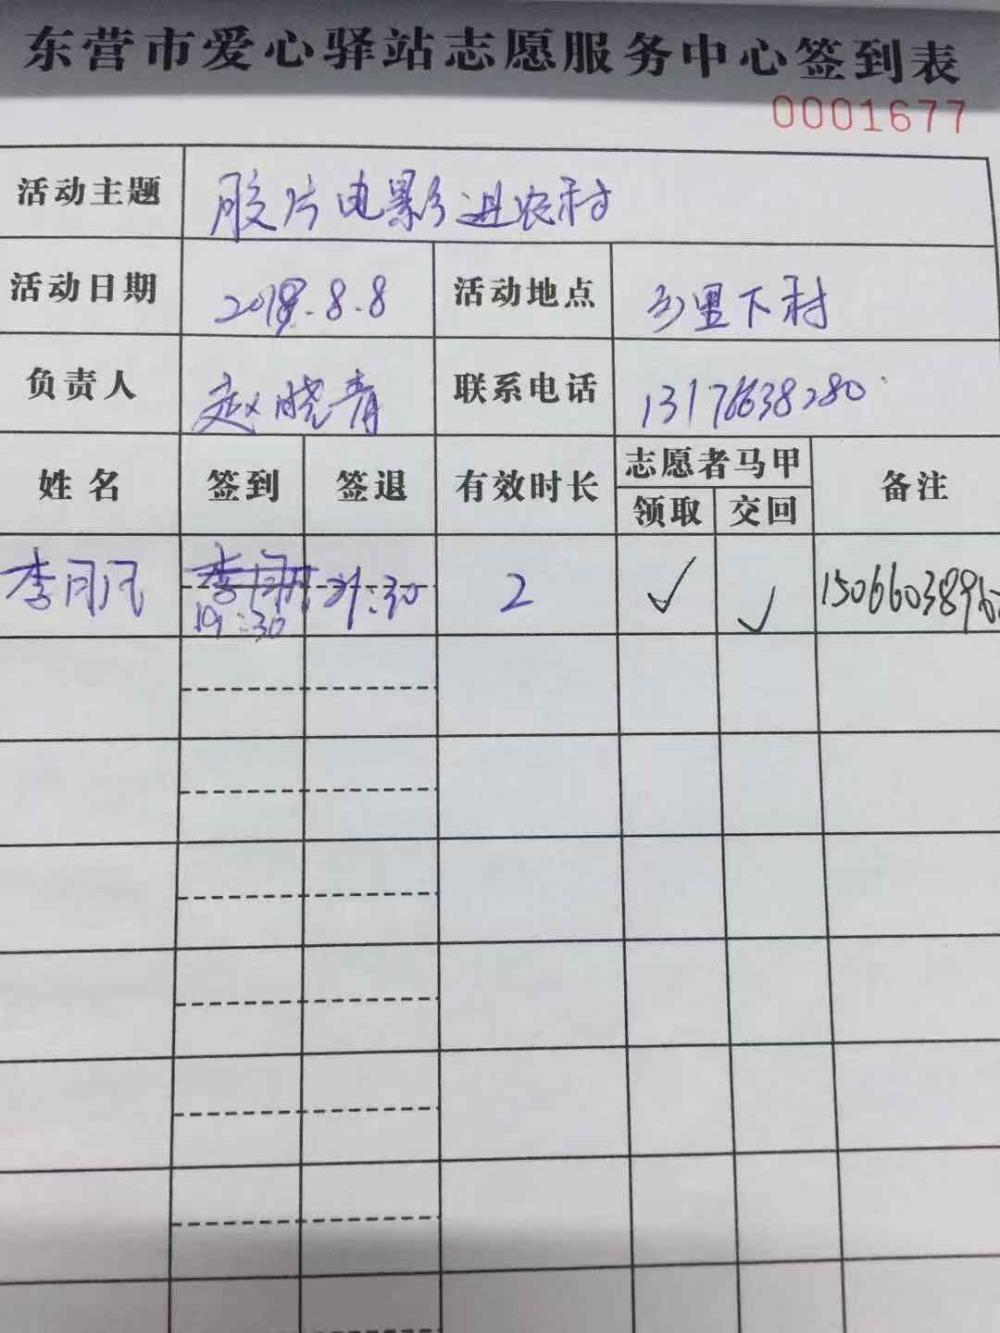 东营市爱心驿站志愿服务中心签到表
0001677
活动主题 胶片电影进农村
活动日期 2018.8.8 活动地点 里下村
负责人 赵晓青 联系电话 13176638280
姓名 签到 签退 有效时长 志愿者马甲 备注
领取 交回
李月 19:30 21:30 2 ✓ ✓ 150660389